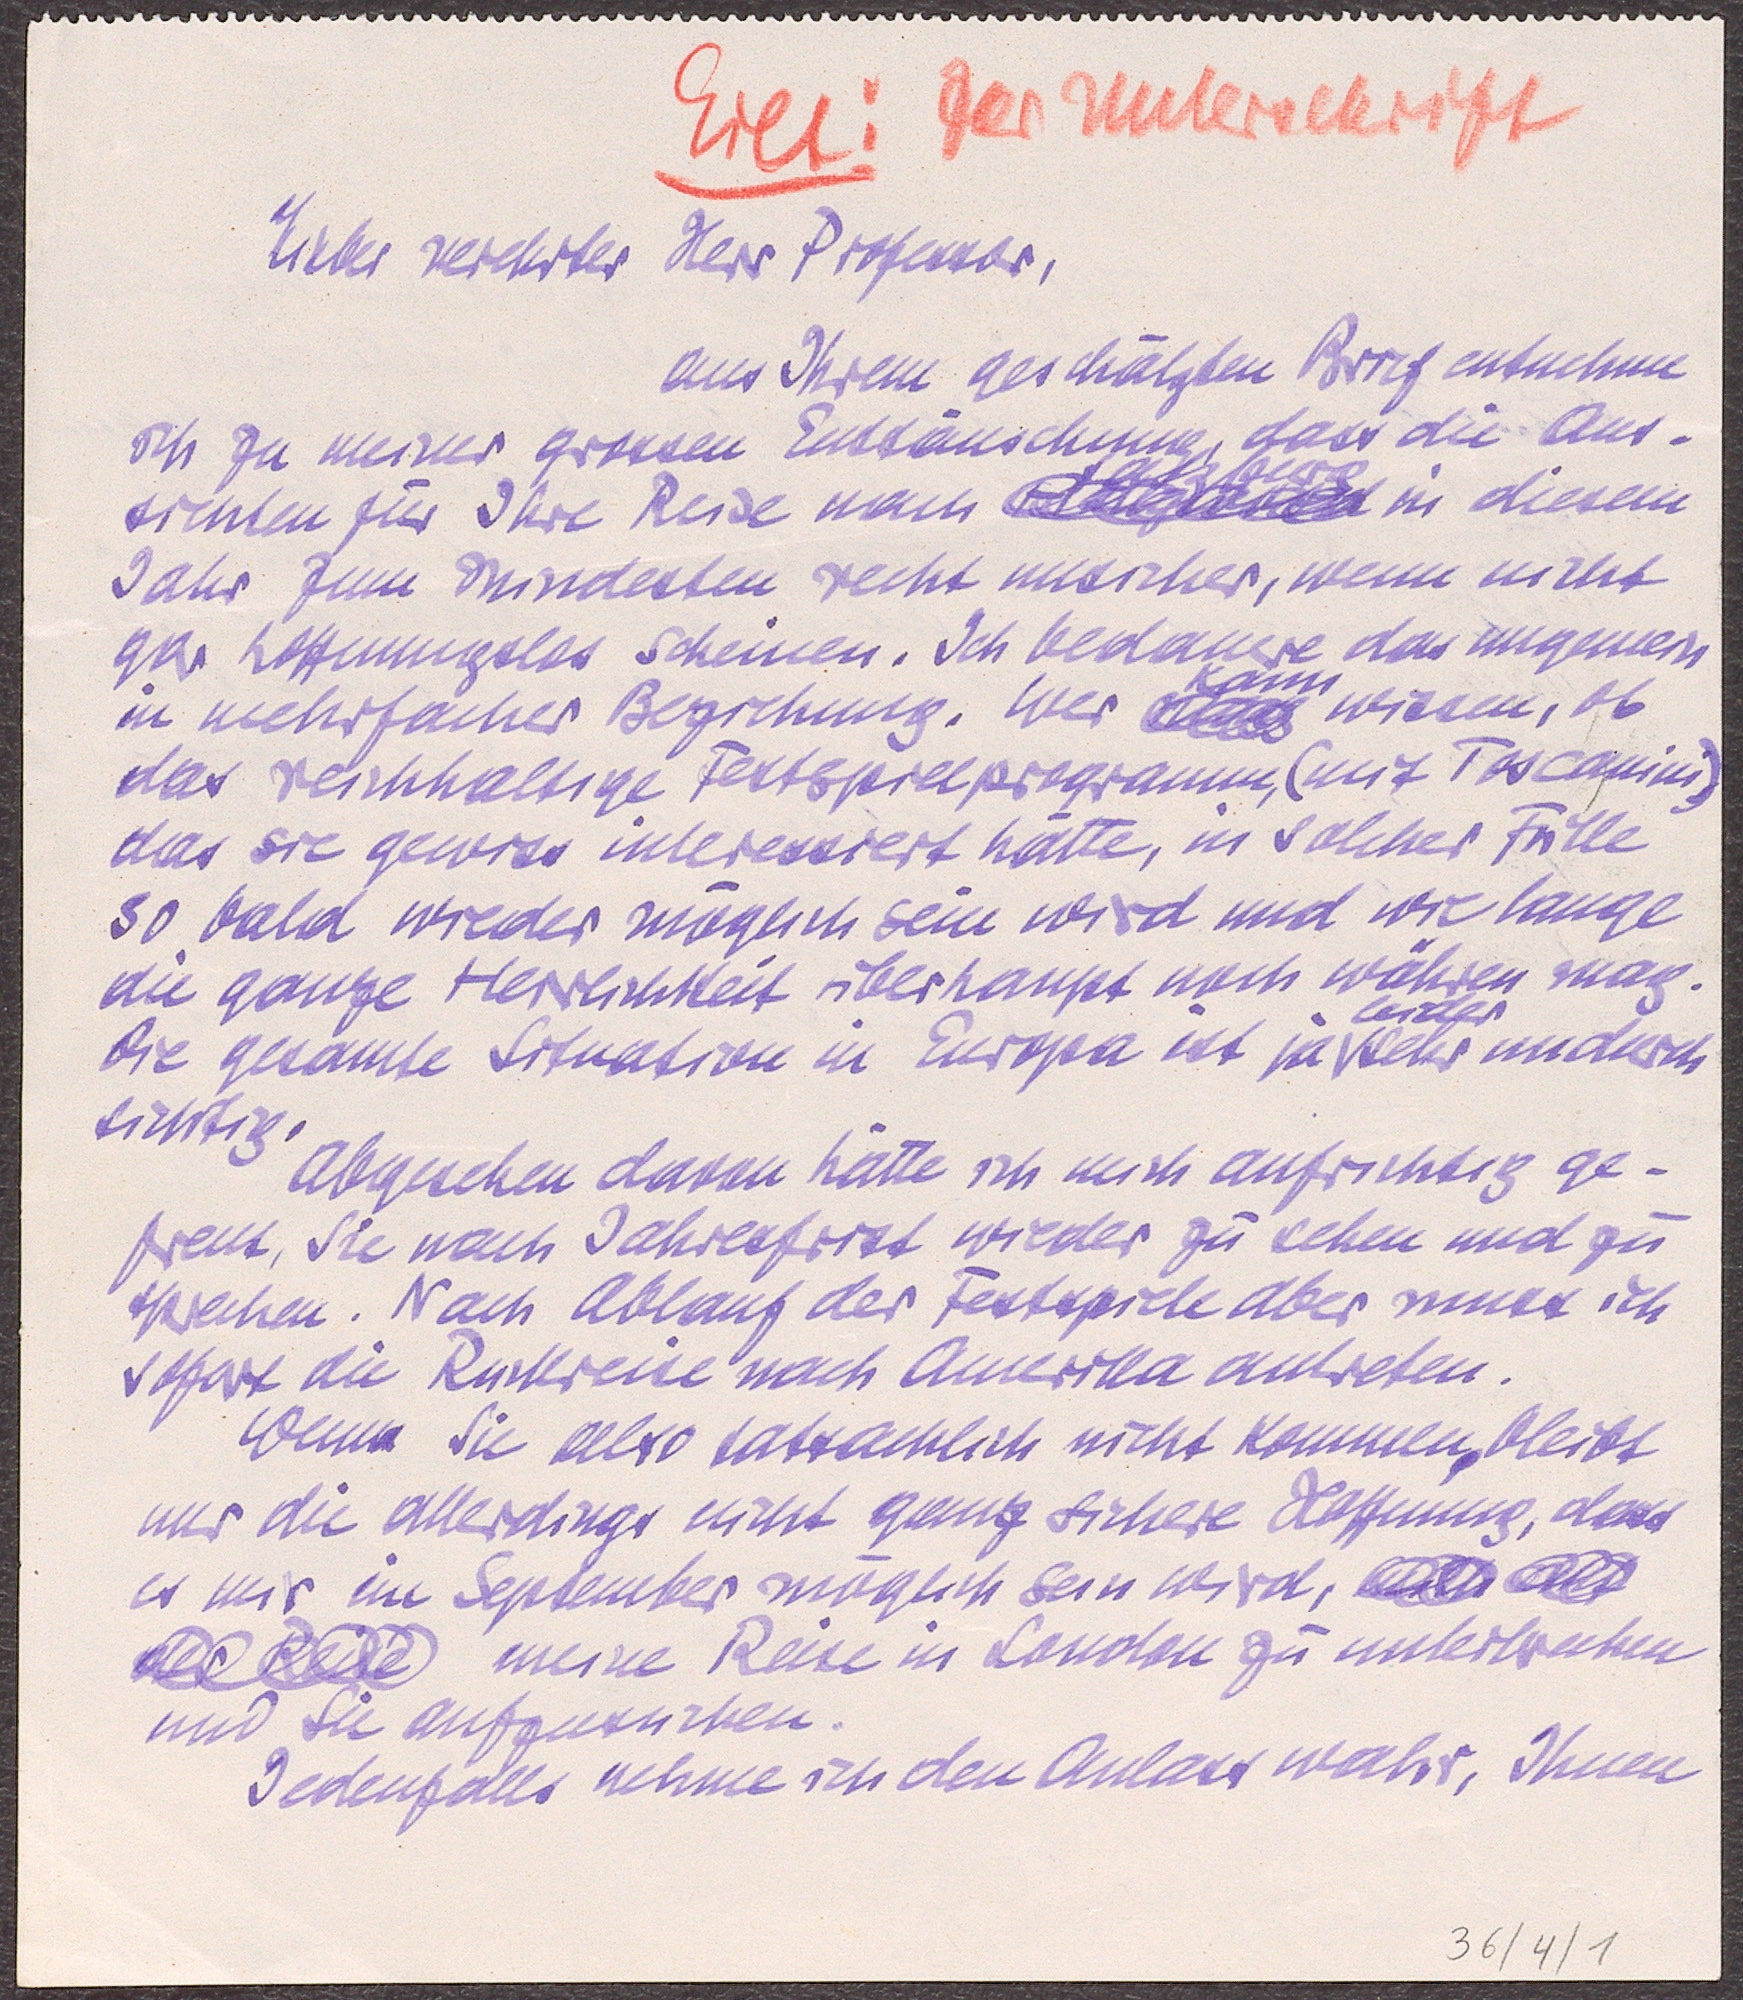 Eilt: Zur Unterschrift
Lieber verehrter Herr Professor,
aus Ihrem geschätzten Brief entnehme
ich zu meiner grossen Enttäuschung, dass die Aus-
sichten für Ihre Reise nach Salzburg in diesem
Jahr zum Mindesten recht unsicher, wenn nicht
gar hoffnungslos scheinen. Ich bedauere das ungemein
in mehrfacher Beziehung. Wer kann wissen, ob
das reichhaltige Festspielprogramm, (mit Toscanini)
das sie gewiss interessiert hätte, in solcher Fülle
so bald wieder möglich sein wird und wie lange
die ganze Herrlichkeit überhaupt noch währen mag.
Die gesamte Situation in Europa ist ja leider sehr undurch
sichtig.
Abgesehen davon hätte ich mich aufrichtig ge-
freut, Sie nach Jahresfrist wieder zu sehen und zu
sprechen. Nach Ablauf der Festspiele aber muss ich
sofort die Rückreise nach Amerika antreten.
Wenn Sie also tatsächlich nicht kommen, bleibt
nur die allerdings nicht ganz sichere Hoffnung, dass
es mir im September möglich sein wird,
der Reise meine Reise in London zu unterbrechen
und Sie aufzusuchen.
Jedenfalls nehme ich den Anlass wahr, Ihnen
36/4/1